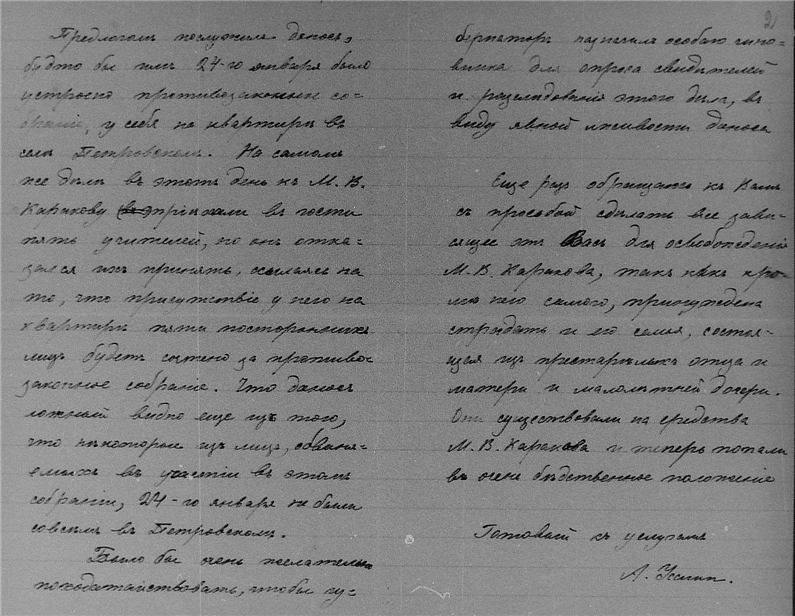 2
Предлогомъ послужилъ доносъ,
будто бы имъ 24-го января было
устроено противозаконное со-
браніе, у себя на квартирѣ въ
селѣ Петровскомъ. На самомъ
же дѣлѣ въ этотъ день къ М. В.
Каракову пріѣхали въ гости
пять учителей, но онъ отка-
зался ихъ принять, ссылаясь на
то, что присутствіе у него на
квартирѣ пяти постороннихъ
лицъ будетъ сочтено за противо-
законное собраніе. Что доносъ
ложный видно еще изъ того,
что нѣкоторые изъ лицъ, обвиня-
емыхъ въ участіи въ этомъ
собраніи, 24-го января не были
совсѣмъ въ Петровскомъ.
Было бы очень желательно
походатайствовать, чтобы гу-
бернаторъ назначилъ особаго чино-
вника для опроса свидѣтелей
и разслѣдованія этого дѣла, въ
виду явной лживости доноса
Еще разъ обращаюсь къ Вамъ
съ просьбой сдѣлать все зави-
сящее отъ Васъ для освобожденія
М. В. Каракова, такъ какъ кро-
мѣ него самого, принуждена
страдать и его семья, состоя-
щая изъ престарѣлыхъ отца и
матери и малолѣтней дочери.
Они существовали на средства
М. В. Каракова и теперь попали
въ очень бѣдственное положеніе
Готовый къ услугамъ
А.